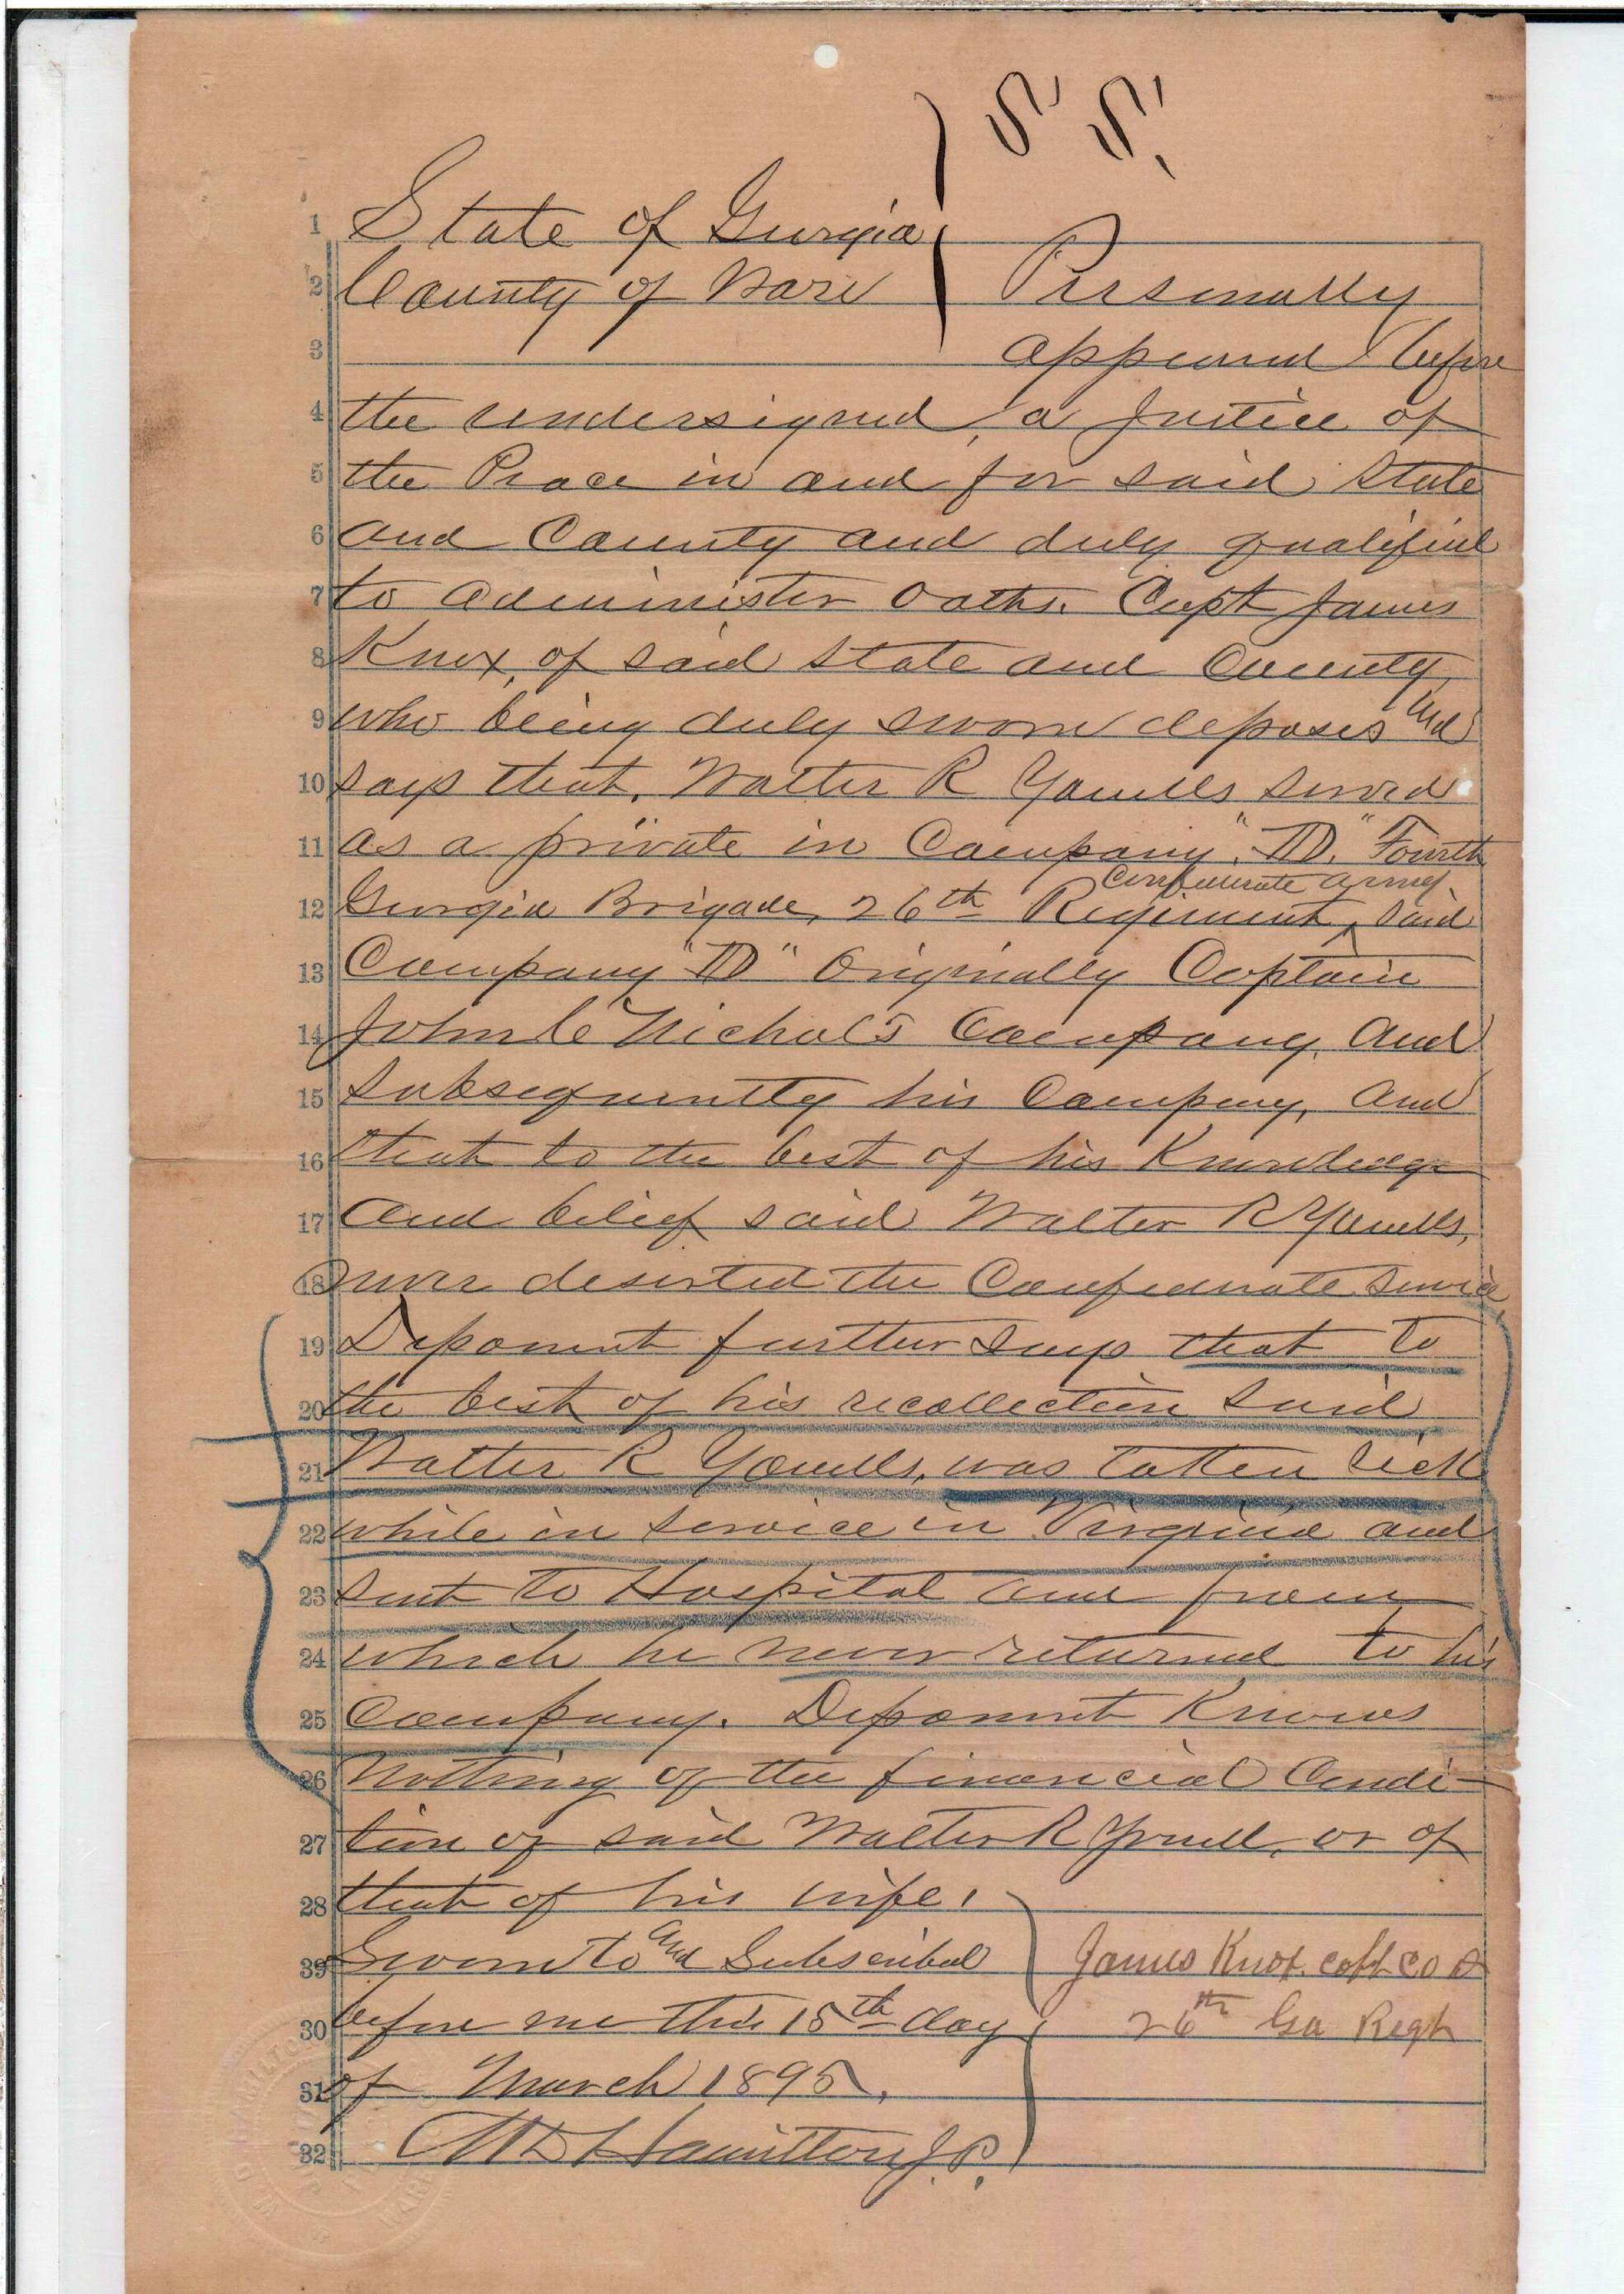 S. S.
1 State of Georgia
2 County of Ware } Personally
3 appeared before
4 the undersigned, a Justice of
5 the Peace in and for said State
6 and County and duly qualified
7 to administer oaths. Capt James
8 Knox, of said State and County,
9 who being duly sworn deposes and
10 says that, Walter R Yomells served
11 as a private in Company "D." Fourth
Confederate Army
12 Georgia Brigade, 26th Regiment, said
13 Company "D" Originally Captain
14 John C Nichols Company, and
15 subsequently his Company, and
16 that to the best of his Knowledge
17 and belief said Walter R Yomells,
18 never deserted the Confederate service
19 Deponent further says that to
20 the best of his recollection said
21 Walter R Yomells, was taken sick
22 while in service in Virginia and
23 sent to Hospital and from
24 which he never returned to his
25 Company. Deponent Knows
26 Nothing of the financial Condi-
27 tion of said Walter R Yomell, or of
28 that of his wife.
39 Sworn to and Subscribed } James Knox. capt CO D
30 before me this 15th day 26th Ga Regt
31 of March 1895.
32 Hamilton J.P.